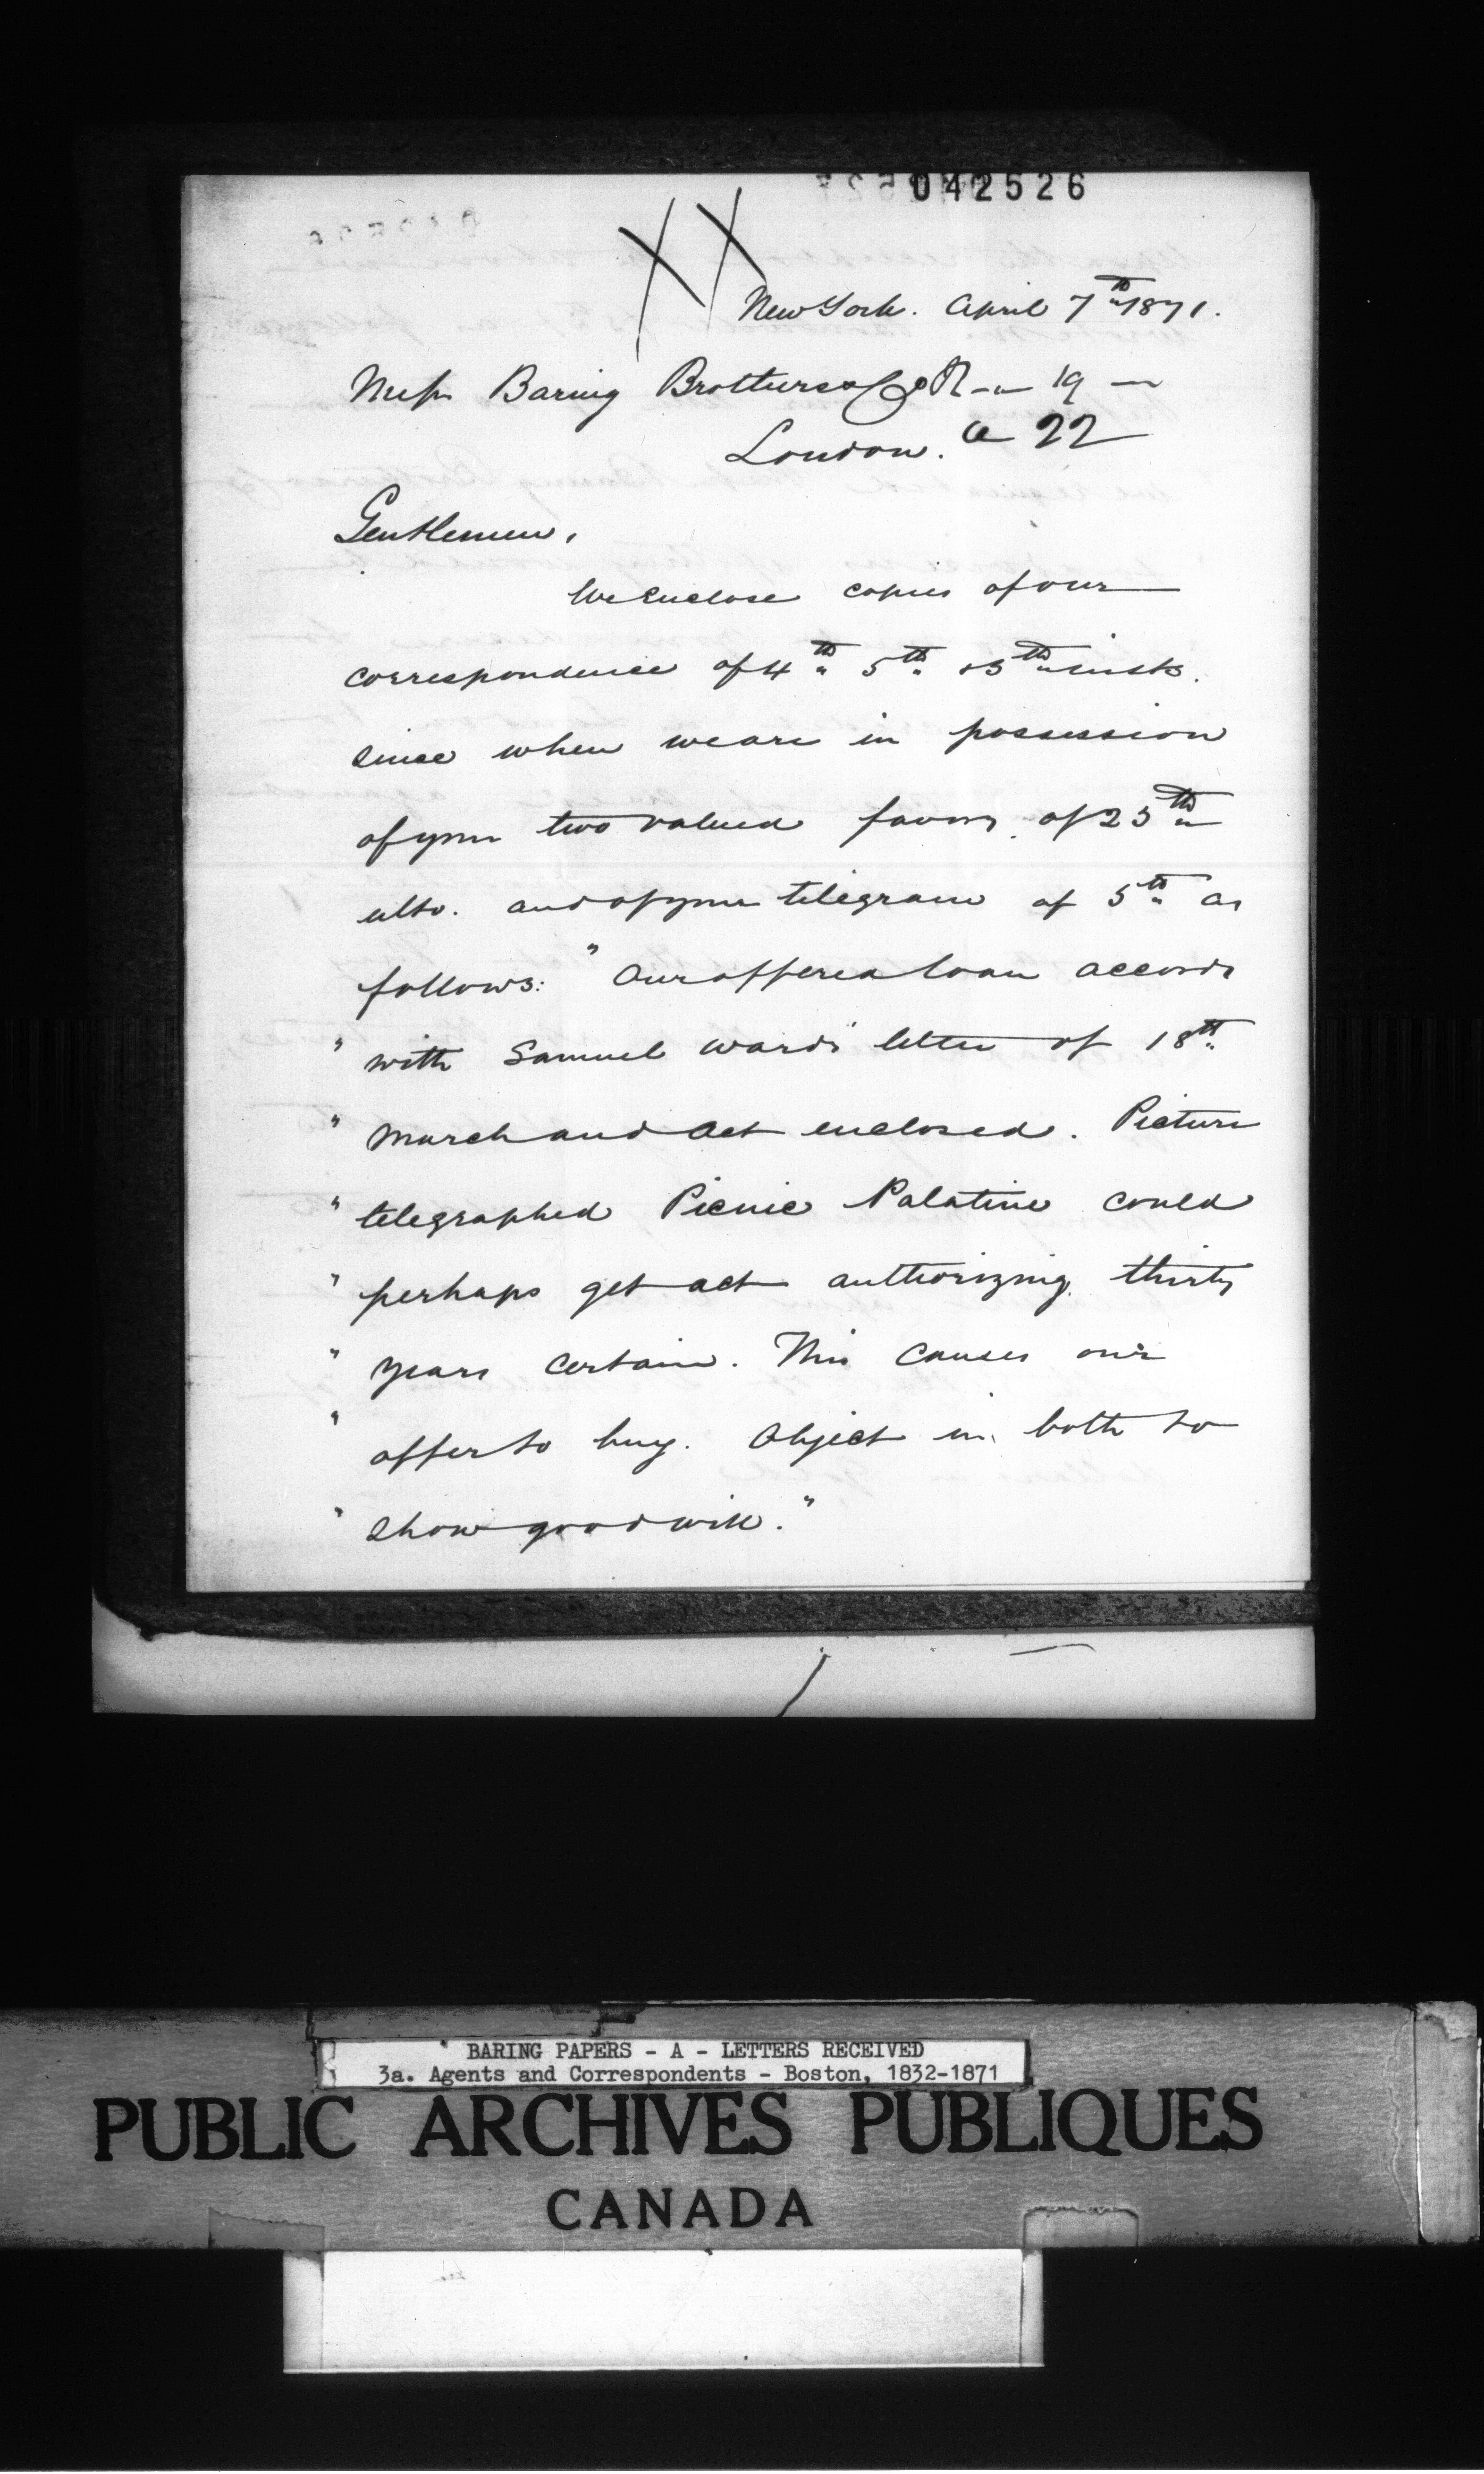 042526
XX
New York. April 7th 1871.
Messrs Baring Brothers & Co R 19
London. a 22
Gentlemen,
We enclose copies of our
correspondence of 4th 5th & 5th insts.
since when we are in possession
of your two valued favors of 25th
ulto. and of your telegram of 5th as
follows: "Our offered loan accords
" with Samuel Wards' letter of 18th
" March and Act enclosed. Picture
" telegraphed Picnic Palatine could
" perhaps get act authorizing thirty
" years certain. This causes our
" offer to buy. Object in both to
" show good will."
BARING PAPERS - A - LETTERS RECEIVED
3a. Agents and Correspondents - Boston, 1832-1871
PUBLIC ARCHIVES PUBLIQUES
CANADA